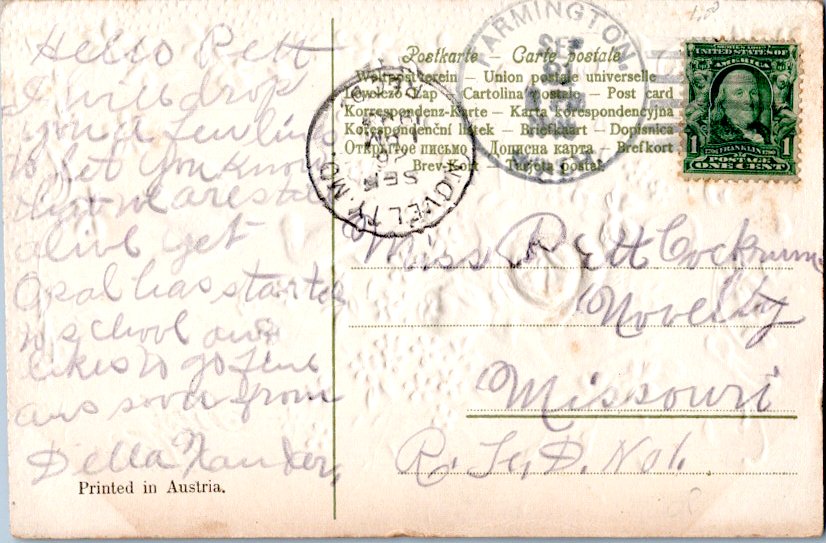 Hello Rett
I will drop
you a few lines
to let you know
that we are still
alive yet
Opal has started
to school and
likes to go fine
ans soon from
Della
Printed in Austria.
Postkarte — Carte postale
Weltpostverein — Union postale universelle
Levelező-Lap — Cartolina postale — Post card
Korrespondenz-Karte — Karta korespondencyjna
Korespondenční lístek — Briefkaart — Dopisnica
Открытое письмо — Дописна карта — Brefkort
Brev-Kort — Tarjeta postal
NOVELTY, MO.
SEP
FARMINGTON,
SEP
UNITED STATES OF
AMERICA
FRANKLIN
1 POSTAGE 1
ONE CENT
Miss Rett Cockrum
Novelty
Missouri
R. F. D. No 1.